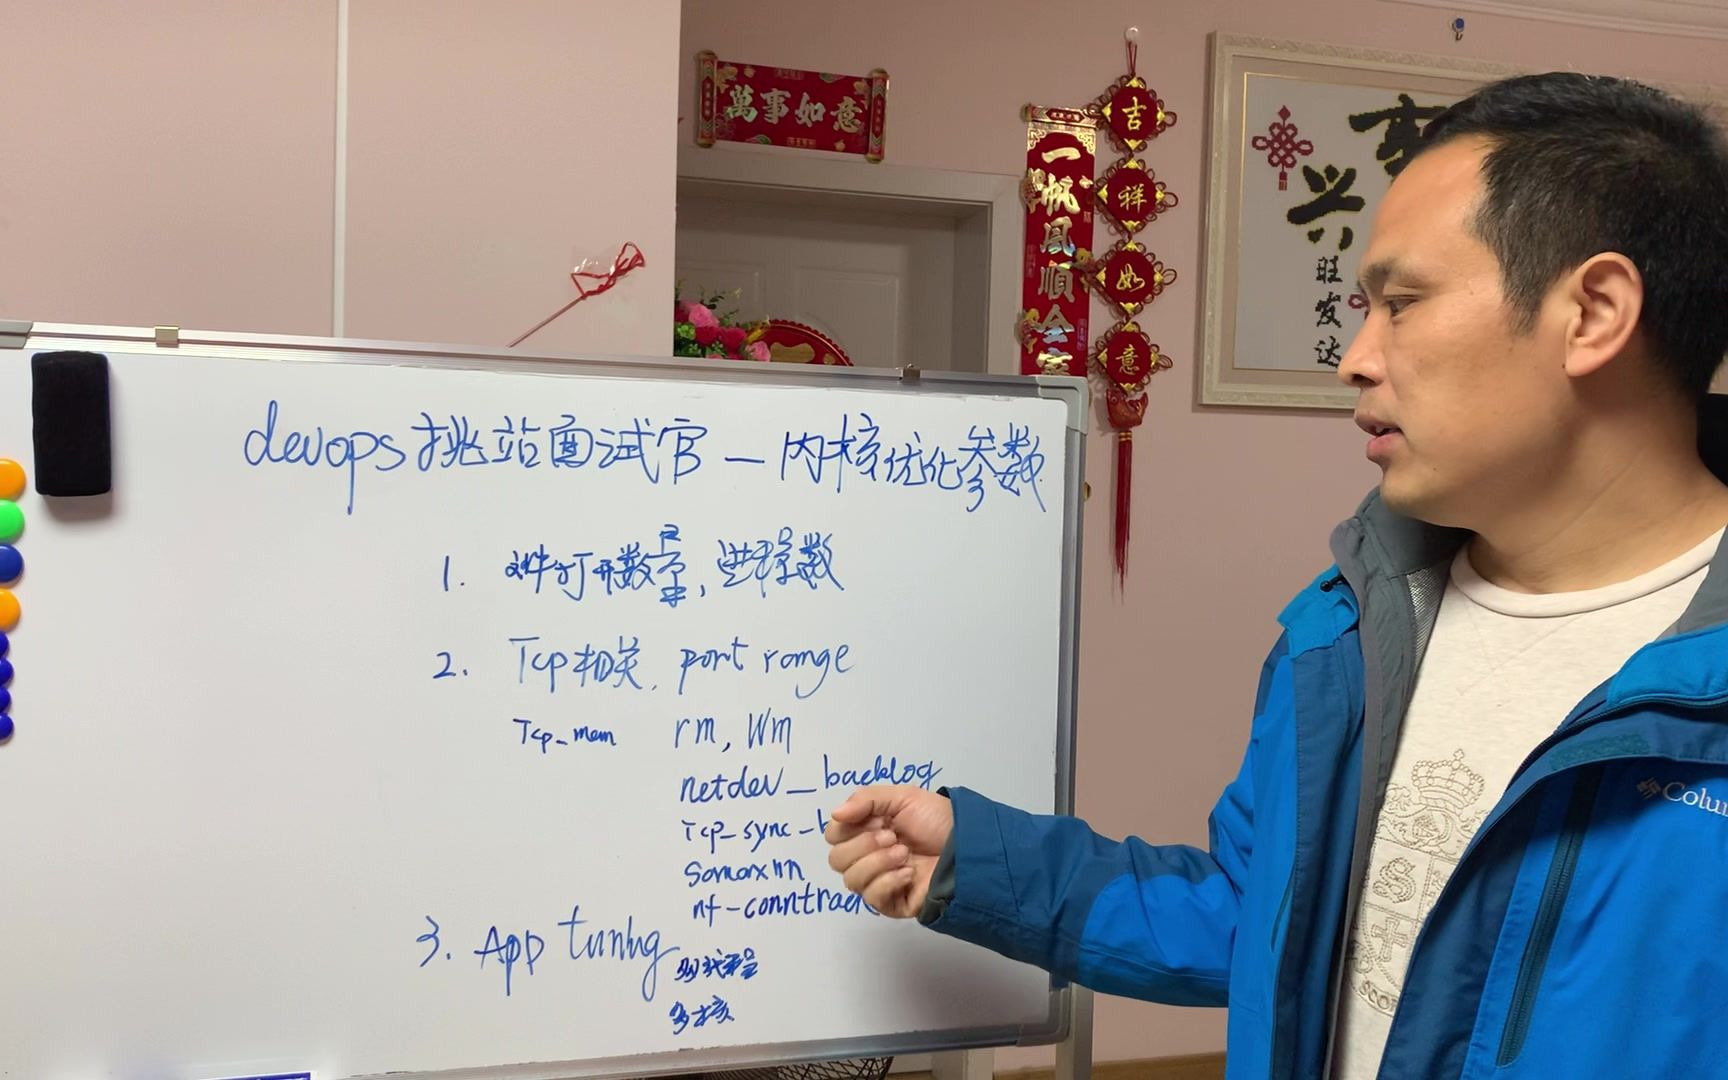 萬事如意
一帆風順全家
吉祥如意
兴
旺发达
devops挑站面试官 — 内核优化参数
1. 文件打开数量, 进程数
2. Tcp相关, port range
Tcp_mem rm, Wm
netdev_backlog
Tcp_sync_b
Somaxnn
nf-conntrack
3. App tuning
多线程
多核
Colum